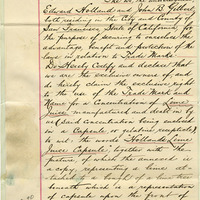 Edward Holland and John H. Gilbert
both residing in the City and County of
San Francisco, State of California, for
the purposes of securing to ourselves the
advantage, benefit and protection of the
laws in relation to Trade Marks
Do Hereby Certify and declare that
we are the exclusive owners of, and
do hereby claim the exclusive right
to the use of the Trade Mark and
Name for a Concentration of Lime
Juice manufactured and sold by
us (said Concentration being enclosed
in a Capsule or gelatine receptacle)
to wit: the words "Hollands Lime
Juice Capsules" together with the
picture, of which the annexed is
a copy, representing a lime
of a lime tree
beneath which is a representation
of capsules upon the front of